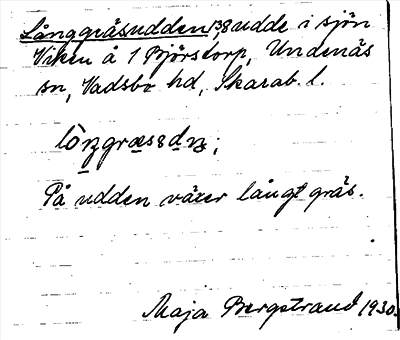 Långgräsudden, udde i sjön
Viken å 1 Björstorp, Undenäs
sn, Vadsbo hd, Skarab. l.
På udden växer långt gräs.
Maja Bergstrand 1930.